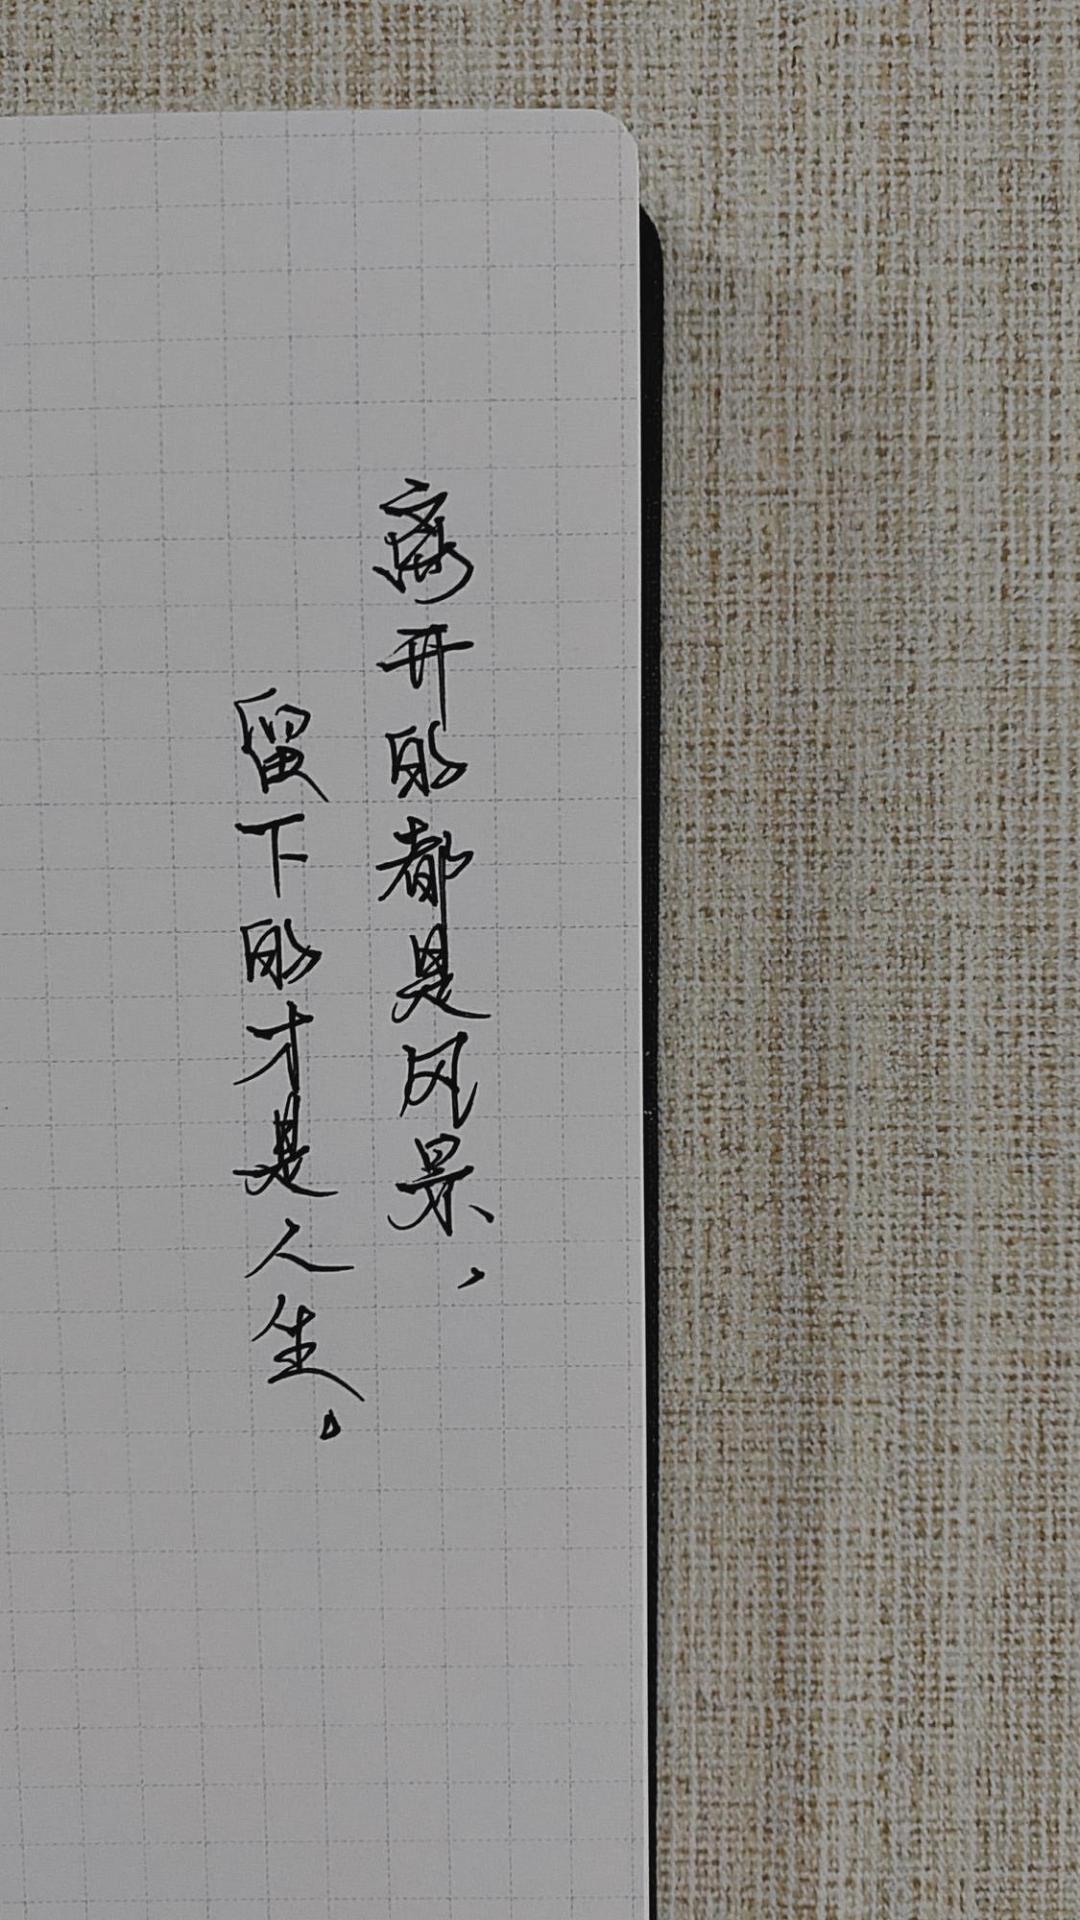 离开的都是风景，
留下的才是人生。